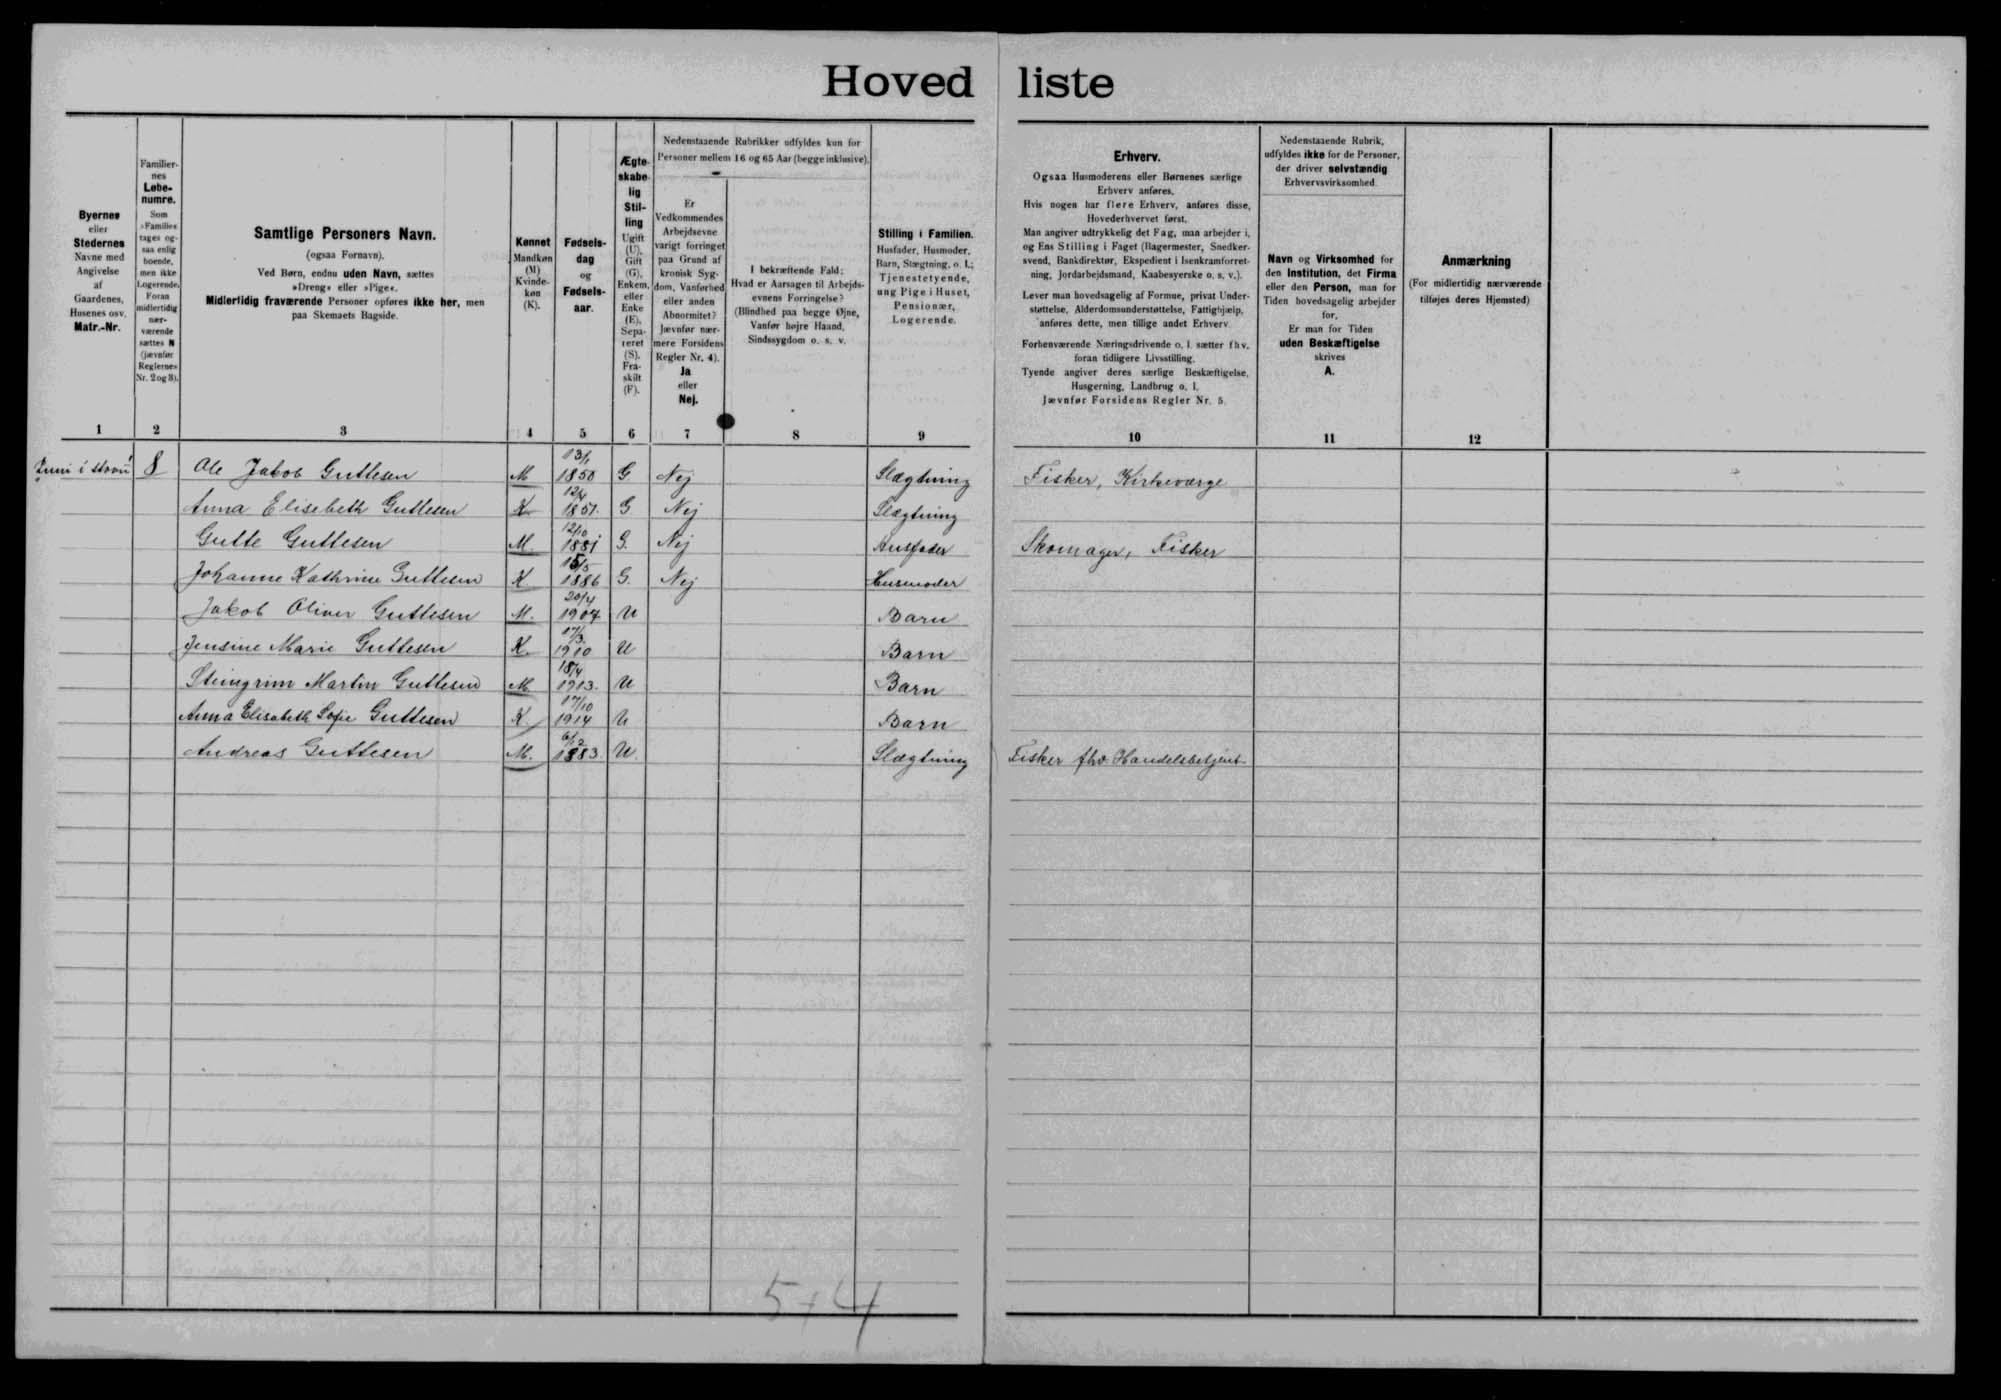 Hoved liste
Byernes
eller
Stedernes
Navne med
Angivelse
af
Gaardenes,
Husenes osv.
Matr.-Nr.
Familier-
nes
Løbe-
numre.
Som
»Familie«
tages og-
saa enlig
boende,
men ikke
Logerende.
Foran
midlertidig
nær-
værende
sættes N
(jævnfør
Reglernes
Nr. 2 og 3).
Samtlige Personers Navn.
(ogsaa Fornavn).
Ved Børn, endnu uden Navn, sættes
»Dreng« eller »Pige«.
Midlertidig fraværende Personer opføres ikke her, men
paa Skemaets Bagside.
Kønnet
Mandkøn
(M)
Kvinde-
køn
(K).
Fødsels-
dag
og
Fødsels-
aar.
Ægte-
skabe-
lig
Stil-
ling
Ugift
(U),
Gift
(G),
Enkem.
eller
Enke
(E),
Sepa-
reret
(S),
Fra-
skilt
(F).
Nedenstaaende Rubrikker udfyldes kun for
Personer mellem 16 og 65 Aar (begge inklusive).
Er
Vedkommendes
Arbejdsevne
varigt forringet
paa Grund af
kronisk Syg-
dom, Vanførhed
eller anden
Abnormitet?
Jævnfør nær-
mere Forsidens
Regler Nr. 4).
Ja
eller
Nej.
I bekræftende Fald:
Hvad er Aarsagen til Arbejds-
evnens Forringelse?
(Blindhed paa begge Øjne,
Vanfør højre Haand,
Sindssygdom o. s. v.
Stilling i Familien.
Husfader, Husmoder,
Barn, Slægtning, o. l.;
Tjenestetyende,
ung Pige i Huset,
Pensionær,
Logerende.
Erhverv.
Ogsaa Husmoderens eller Børnenes særlige
Erhverv anføres.
Hvis nogen har flere Erhverv, anføres disse,
Hovederhvervet først.
Man angiver udtrykkelig det Fag, man arbejder i,
og Ens Stilling i Faget (Bagermester, Snedker-
svend, Bankdirektør, Ekspedient i Isenkramforret-
ning, Jordarbejdsmand, Kaabesyerske o. s. v.).
Lever man hovedsagelig af Formue, privat Under-
støttelse, Alderdomsunderstøttelse, Fattighjælp,
anføres dette, men tillige andet Erhverv.
Forhenværende Næringsdrivende o. l. sætter fhv.
foran tidligere Livsstilling.
Tyende angiver deres særlige Beskæftigelse,
Husgerning, Landbrug o. l.
Jævnfør Forsidens Regler Nr. 5.
Nedenstaaende Rubrik,
udfyldes ikke for de Personer,
der driver selvstændig
Erhvervsvirksomhed.
Navn og Virksomhed for
den Institution, det Firma
eller den Person, man for
Tiden hovedsagelig arbejder
for.
Er man for Tiden
uden Beskæftigelse
skrives
A.
Anmærkning
(For midlertidig nærværende
tilføjes deres Hjemsted)
1 2 3 4 5 6 7 8 9 10 11 12
i stovu 8 Ole Jakob Guttesen M 13/1 1850 G Nej Slægtning Fisker, Kirkeværge
Anna Elisebeth Guttesen K 12/4 1851. G Nej Slægtning
Gutte Guttesen M. 12/10 1881 G. Nej Husfader Skomager, Fisker
Johanne Kathrine Guttesen K. 15/5 1886 G. Nej Husmoder
Jakob Oliver Guttesen M. 20/4 1907 U Barn
Jensine Marie Guttesen K. 17/3 1910 U Barn
Steingrim Martin Guttesen M 18/4 1913. U Barn
Anna Elisabeth Sofie Guttesen K. 17/10 1914 U Barn
Andreas Guttesen M. 6/12 1883 U. Slægtning Fisker fhv. Handelsbetjent
5+4